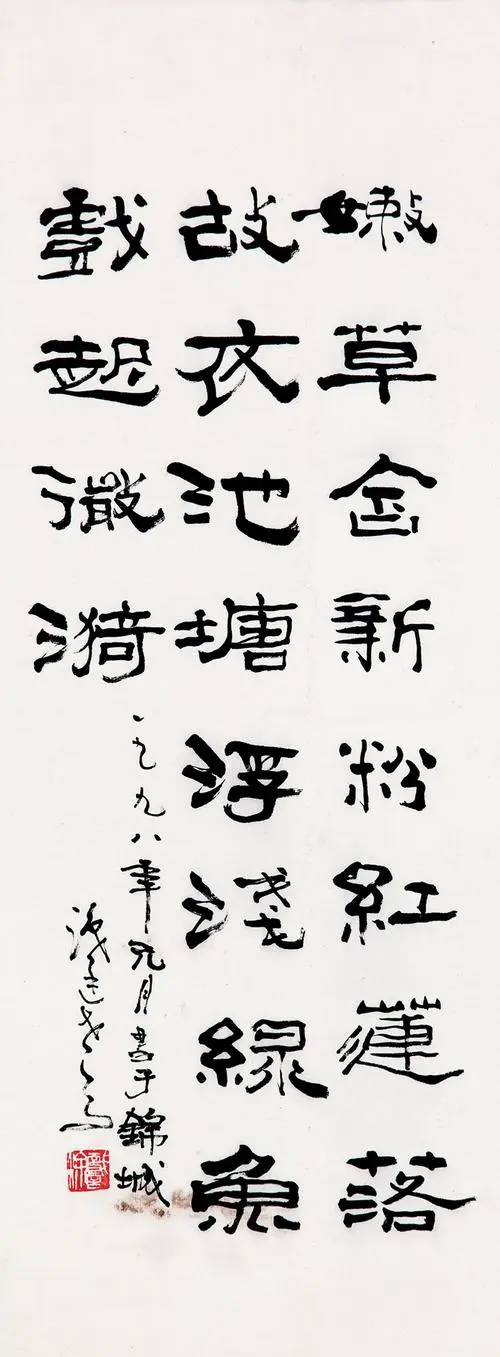 嫩草含新粉紅蓮落
故衣池塘浮淺綠魚
戲起微漪
一九九八年元月書于錦城